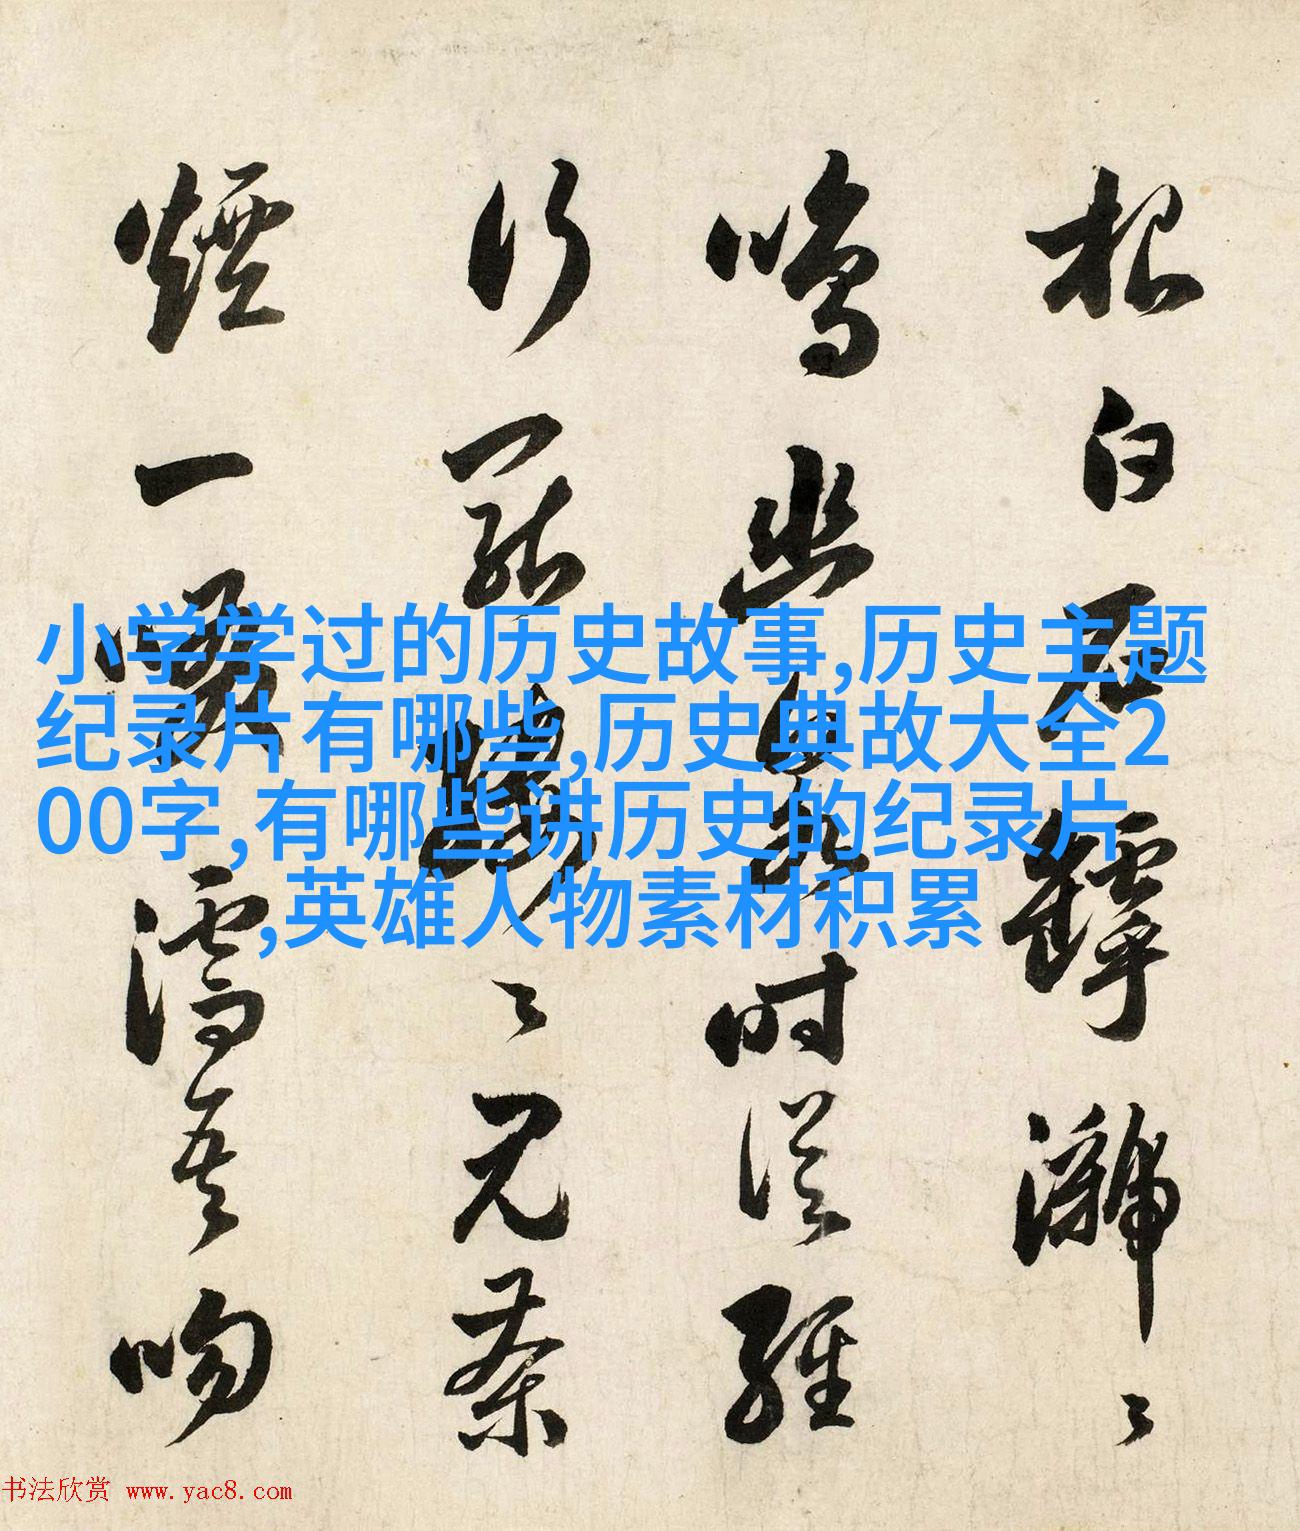 小学学过的历史故事,历史主题
纪录片有哪些,历史典故大全2
00字,有哪些讲历史的纪录片
,英雄人物素材积累
根白石
鳴幽泉時從
行罷
煙一濡吾吻
书法欣赏 www.yac8.com